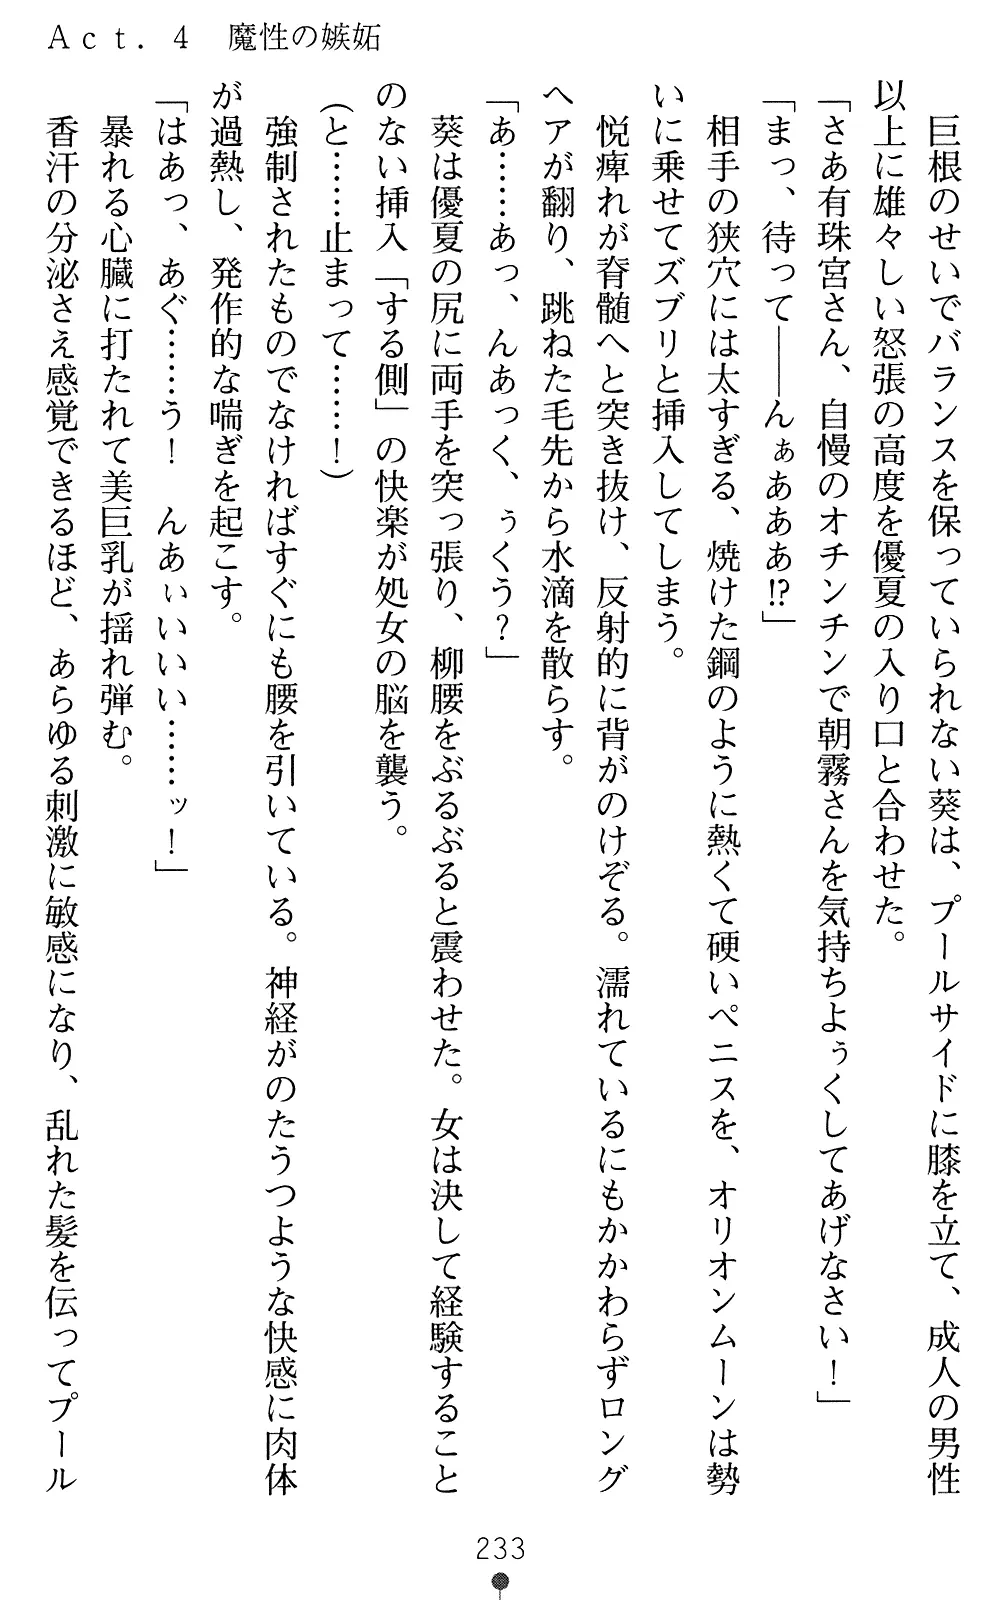 Act.4　魔性の嫉妬
　巨根のせいでバランスを保っていられない葵は、プールサイドに膝を立て、成人の男性
以上に雄々しい怒張の高度を優夏の入り口と合わせた。
「さあ有珠宮さん、自慢のオチンチンで朝霧さんを気持ちよぅくしてあげなさい！」
「まっ、待って――んぁああぁ!?」
　相手の狭穴には太すぎる、焼けた鋼のように熱くて硬いペニスを、オリオンムーンは勢
いに乗せてズブリと挿入してしまう。
　悦痺れが脊髄へと突き抜け、反射的に背がのけぞる。濡れているにもかかわらずロング
ヘアが翻り、跳ねた毛先から水滴を散らす。
「あ……あっ、んあっく、ぅくう？」
　葵は優夏の尻に両手を突っ張り、柳腰をぶるぶると震わせた。女は決して経験すること
のない挿入「する側」の快楽が処女の脳を襲う。
（と……止まって……！）
　強制されたものでなければすぐにも腰を引いている。神経がのたうつような快感に肉体
が過熱し、発作的な喘ぎを起こす。
「はあっ、あぐ……う！　んあぃいいい……ッ！」
　暴れる心臓に打たれて美巨乳が揺れ弾む。
　香汗の分泌さえ感覚できるほど、あらゆる刺激に敏感になり、乱れた髪を伝ってプール
233